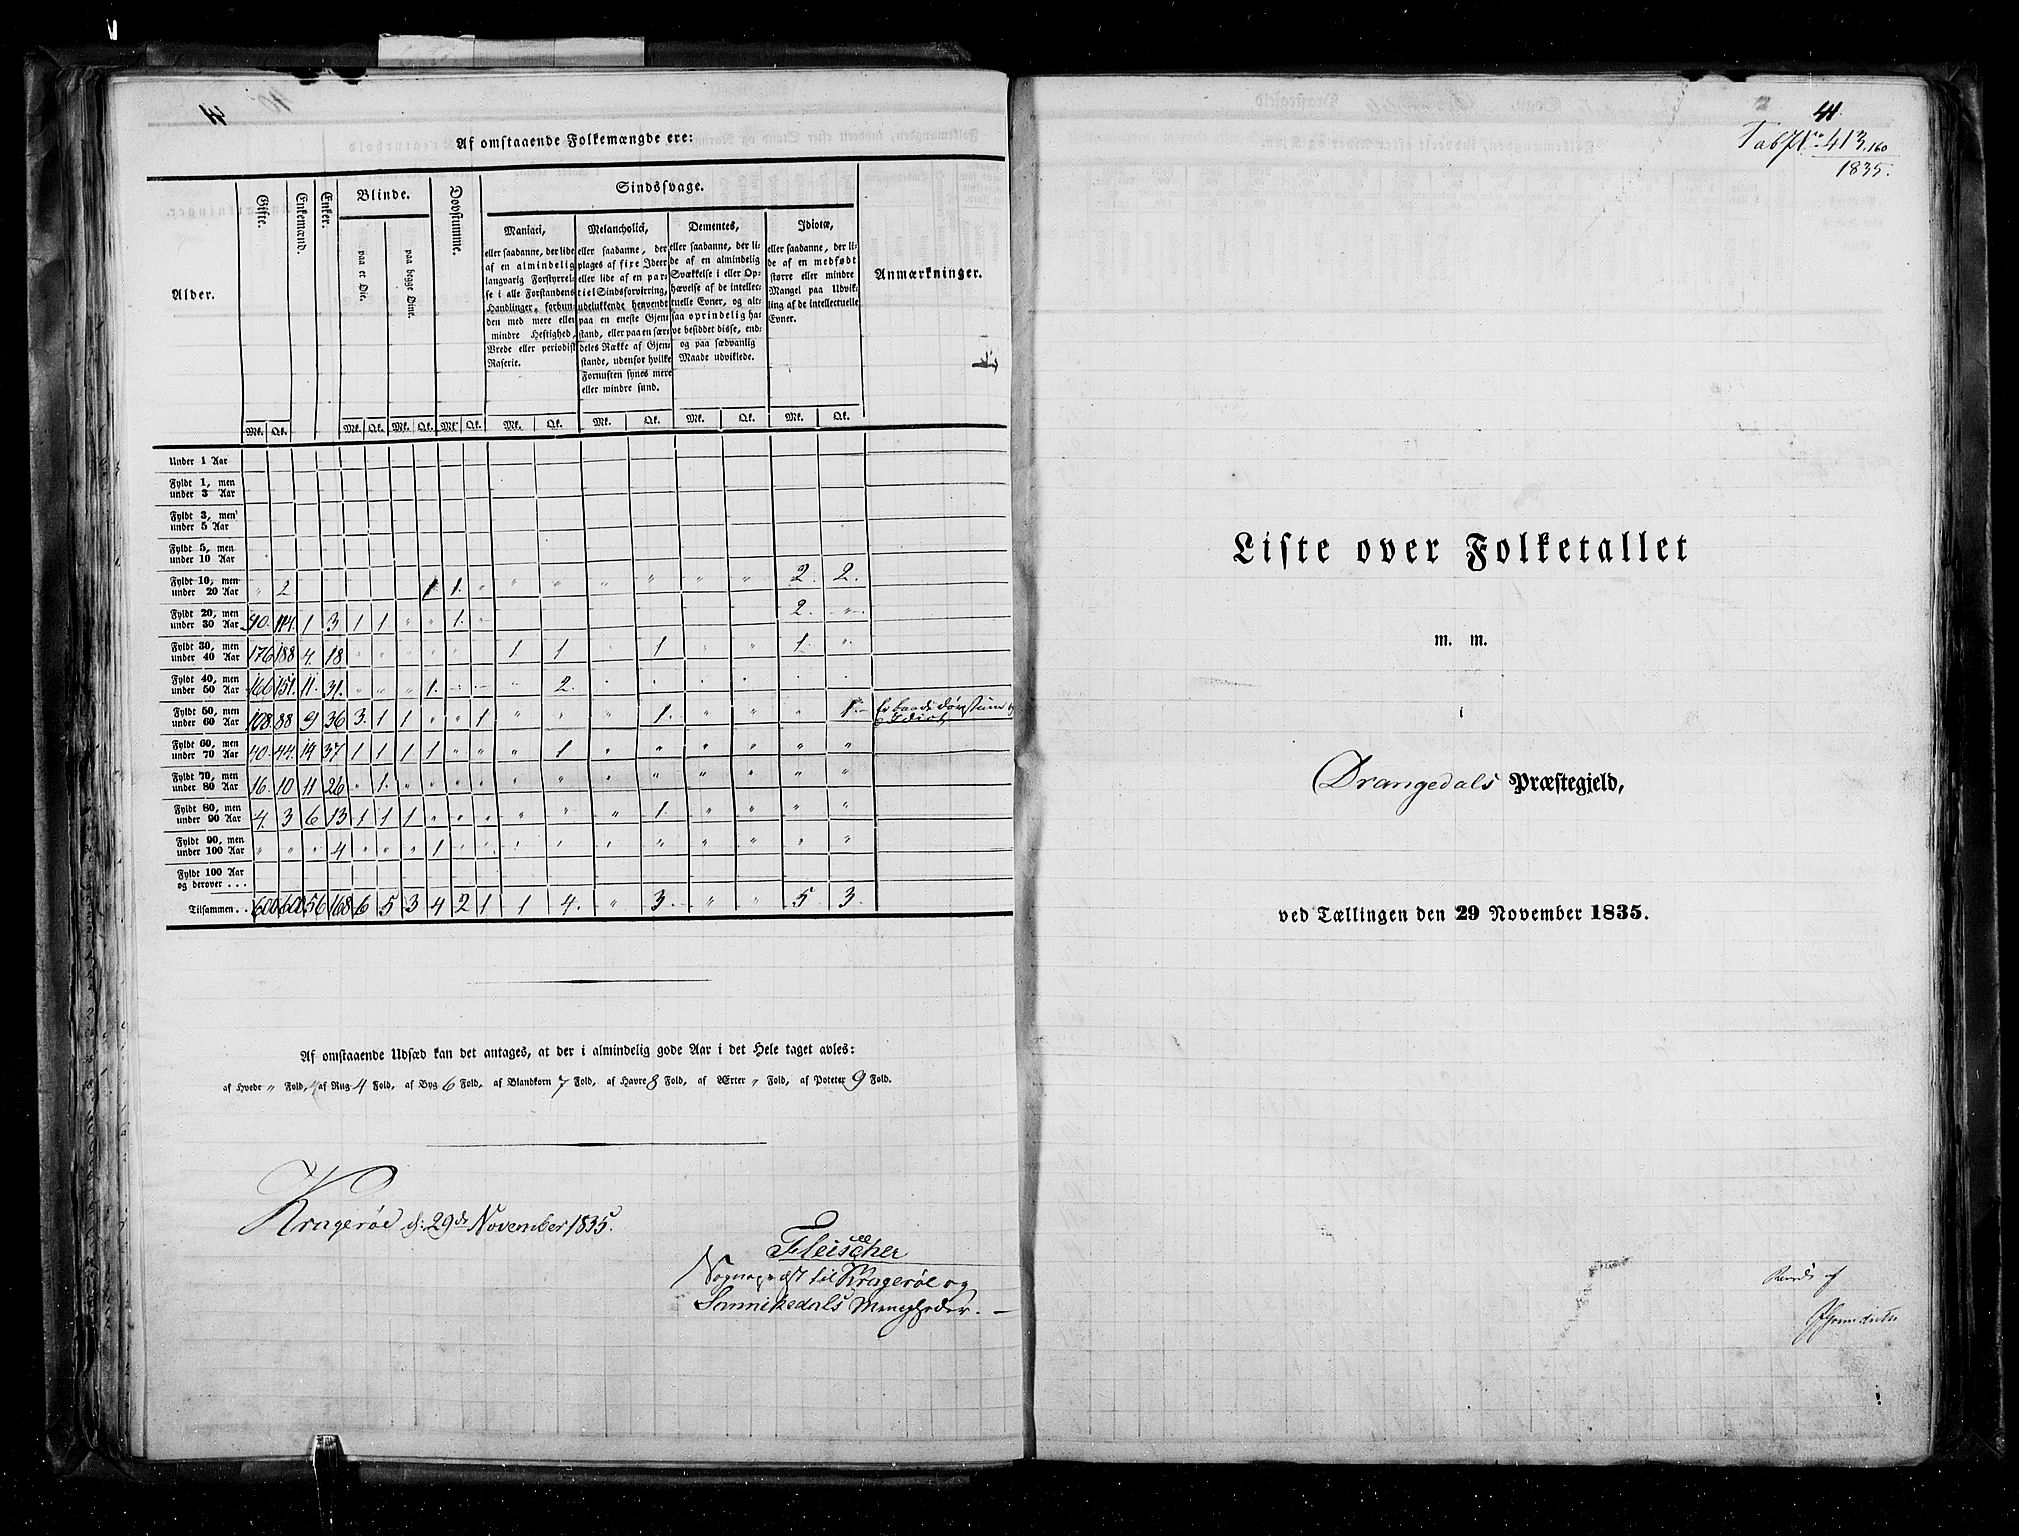 Af omstaaende Folkemængde ere:
Alder. Gifte. Enkemænd. Enker. Blinde. Dovstumme. Sindssvage. Anmærkninger.
paa et Øie. paa begge Øine.
Maniaci,
eller saadanne, der lide
af en almindelig
langvarig Forstyrrel-
se i alle Forstandens
Handlinger, forbun-
den med mere eller
mindre Heftighed,
Vrede eller periodisk
Raserie.
Melancholici,
eller saadanne, der
plages af fixe Ideer
eller lide af en par-
tiel Sindsforvirring,
udelukkende henvendt
paa en eneste Gjen-
stand, eller paa en sær-
deles Række af Gjen-
stande, udenfor hvilke
Fornuften synes mere
eller mindre sund.
Dementes,
eller saadanne, der li-
de af en almindelig
Svækkelse i eller Op-
hævelse af de intellec-
tuelle Evner, og alt-
saa oprindelig ha-
ve besiddet disse, end-
og paa sædvanlig
Maade udviklede.
Idiotæ,
eller saadanne, der li-
de af en medfødt
større eller mindre
Mangel paa Udvik-
ling af de intellectuelle
Evner.
Mk. Qk. Mk. Qk. Mk. Qk. Mk. Qk. Mk. Qk. Mk. Qk. Mk. Qk. Mk. Qk.
Under 1 Aar
Fyldt 1, men
under 3 Aar
Fyldt 3, men
under 5 Aar
Fyldt 5, men
under 10 Aar
Fyldt 10, men
under 20 Aar " 2 1 1. " " " " " " " 2. 2.
Fyldt 20, men
under 30 Aar 90. 114. 1 3 1 1 " " 1. " 2. "
Fyldt 30, men
under 40 Aar 176 188 4. 18 " " " " " 1 1 " 1 " " 1. "
Fyldt 40, men
under 50 Aar 166 151. 11. 31. " " " 1. " 2. " " " " " "
Fyldt 50, men
under 60 Aar 108. 88 9 36 3. 1 1 " " 1 " " " 1. " " " 1. Er baade døvstum og
Idiot
Fyldt 60, men
under 70 Aar 40. 44. 19 37 1 1 1 1 " " " 1 " " " " " "
Fyldt 70, men
under 80 Aar 16. 10 11 26 " 1. " " " " " " " " " " " "
Fyldt 80, men
under 90 Aar 4. 3 6 13 1 1 1 " " " " " " 1. " " " "
Fyldt 90, men
under 100 Aar " " " 4 " " " 1 " " " " " " " " " "
Fyldt 100 Aar
og derover . . .
Tilsammen . . 600 600 56 168 6 5 3 4 2 1 1 4. " 3. " " 5 3.
Af omstaaende Udsæd kan det antages, at der i almindelig gode Aar i det Hele taget avles:
af Hvede " Fold, af Rug 4 Fold, af Byg 6 Fold, af Blandkorn 7 Fold, af Havre 8 Fold, af Ærter " Fold, af Poteter 9 Fold.
Kragerøe d: 29de November 1835.
Fleischer
Sognepræst til Kragerøe og
Sannikedals Menigheder.
41.
Tab No 413.160
1835.
Liste over Folketallet
m. m.
i
Drangedals Præstegjeld,
ved Tællingen den 29 November 1835.